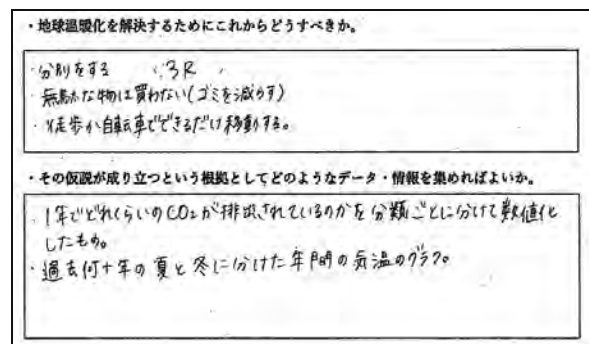 ・地球温暖化を解決するためにこれからどうすべきか。
・分別をする ・3R
・無駄な物は買わない(ゴミを減らす)
・徒歩か自転車でできるだけ移動する。
・その仮説が成り立つという根拠としてどのようなデータ・情報を集めればよいか。
・1年でどれくらいのCO₂が排出されているのかを分類ごとに分けて数値化
したもの。
・過去何十年の夏と冬に分けた年間の気温のグラフ。